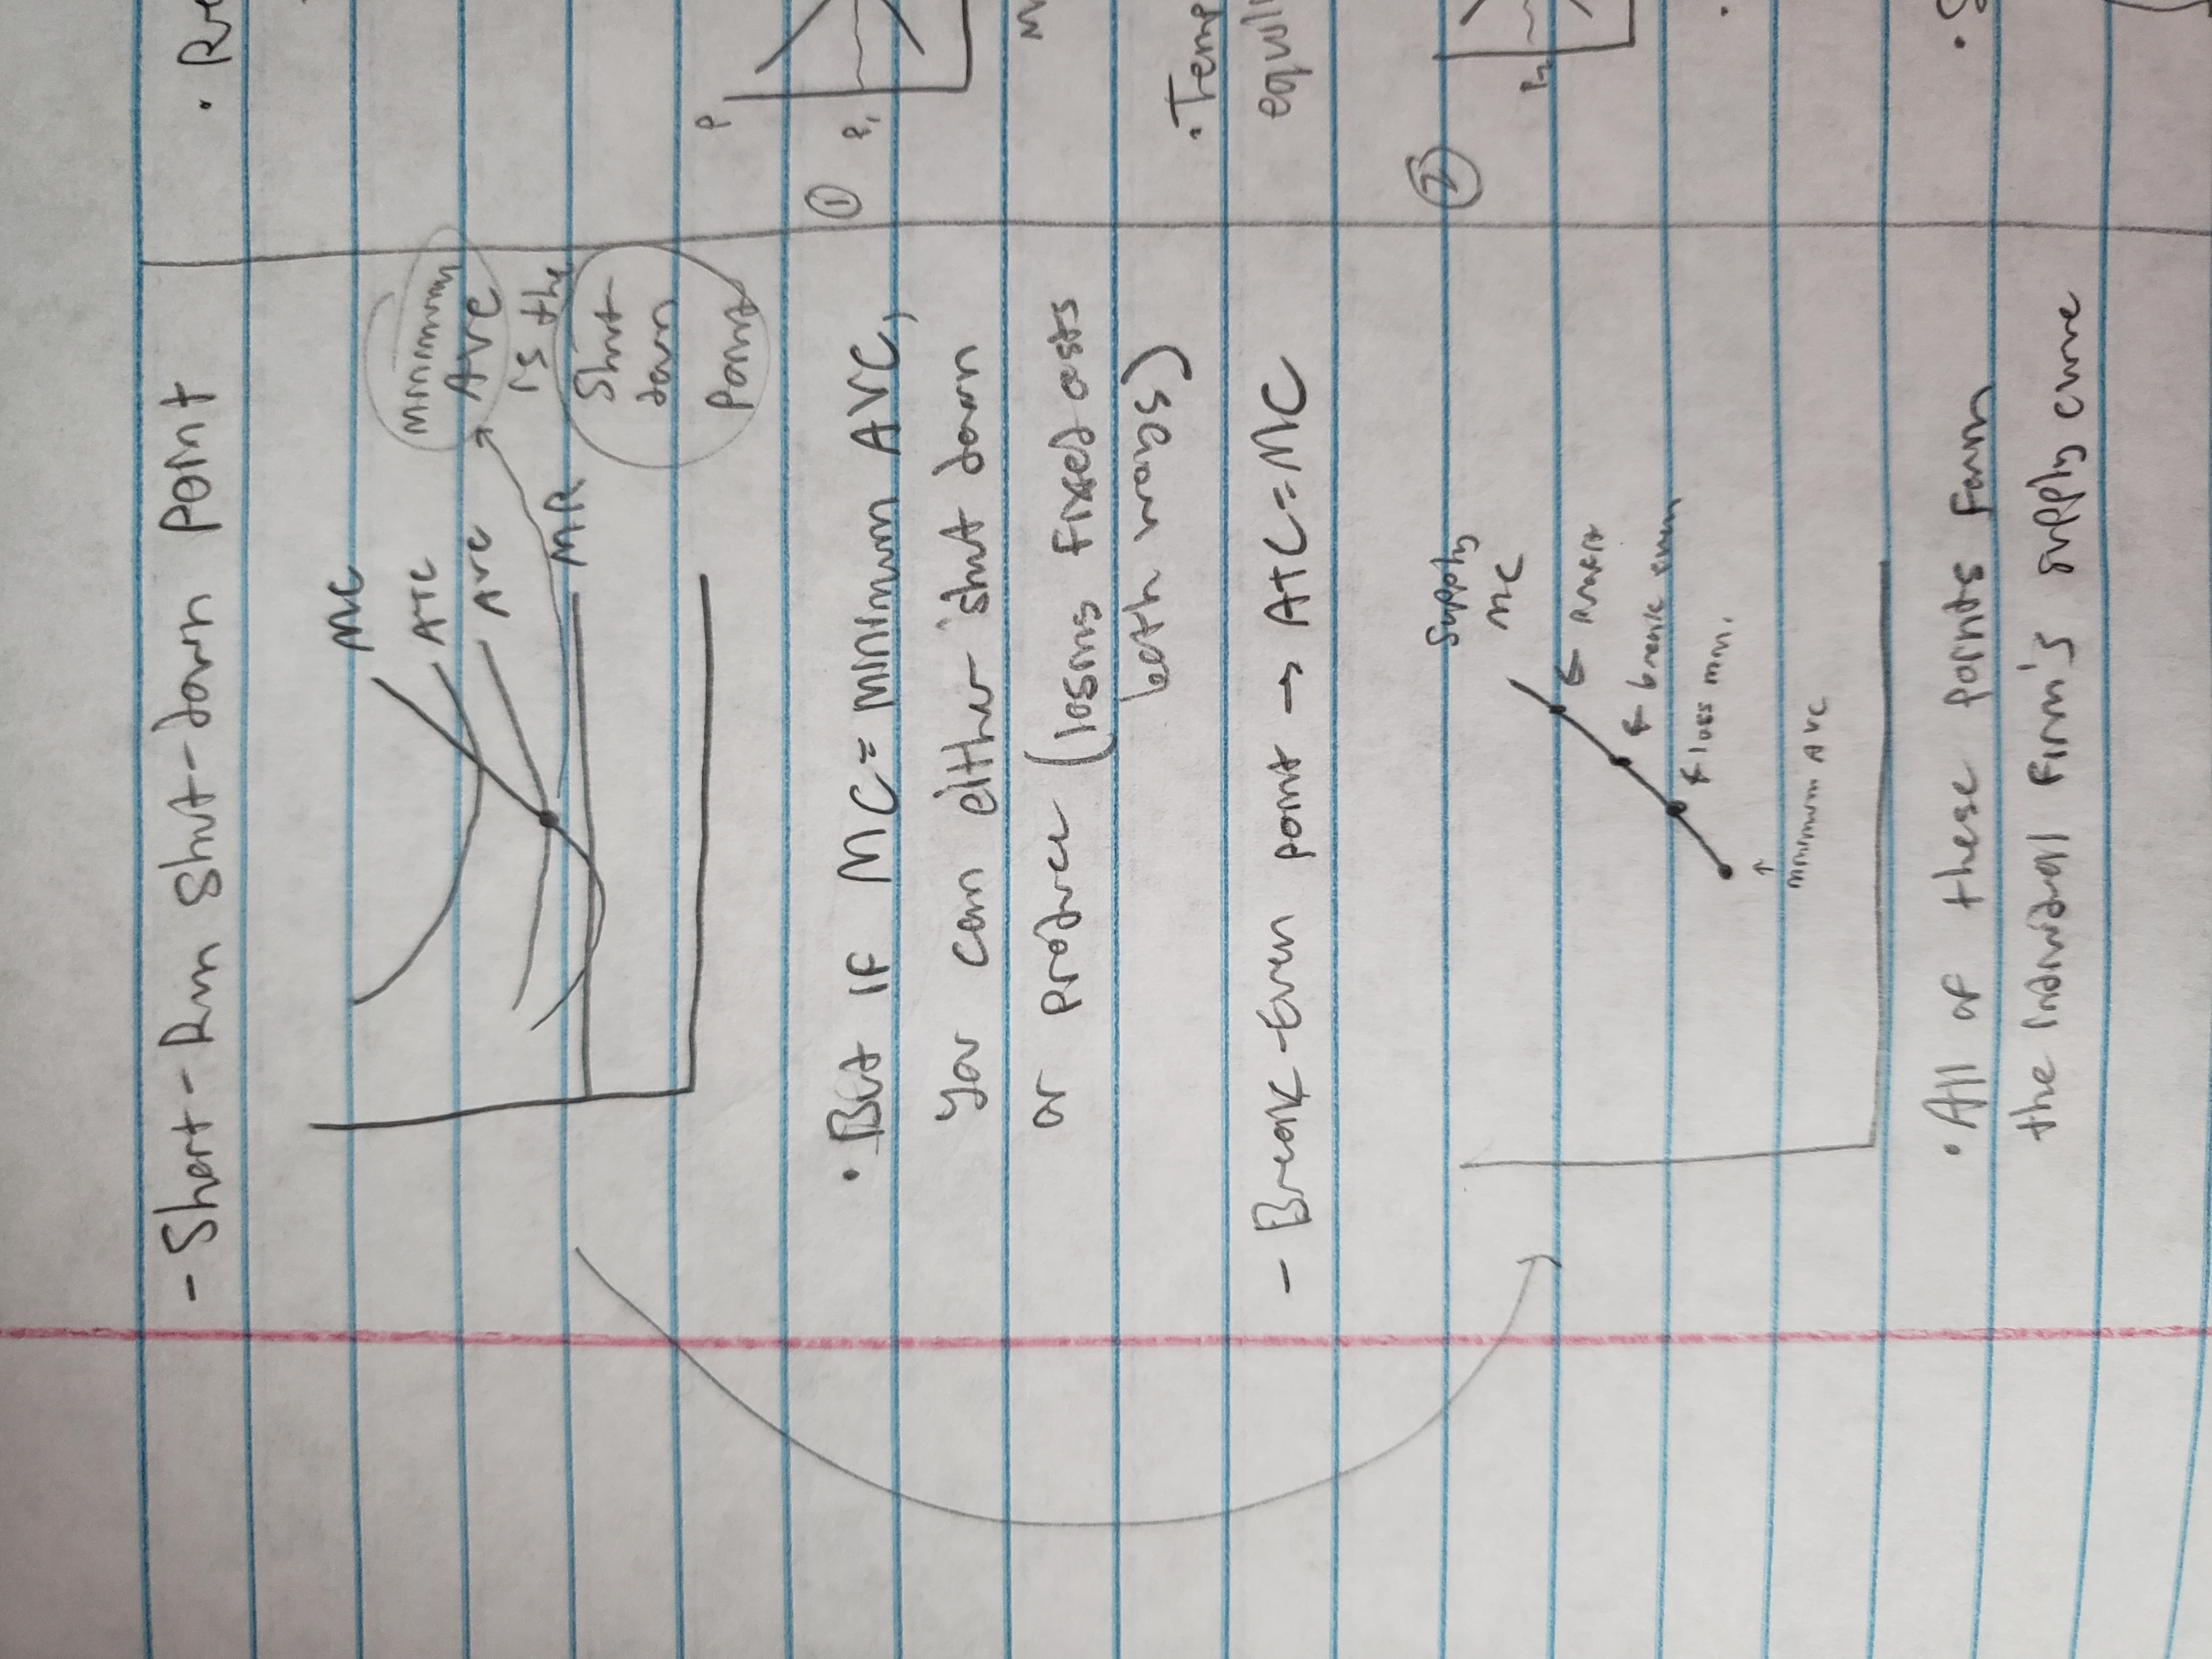 - Short-Run Shut-down Point
MC
ATC
AVC
MR
minimum
AVC
is the
Shut
down
Point
• But if MC = minimum AVC,
you can either shut down
or produce (losing fixed costs
both ways)
- Break-Even point → ATC=MC
Supply
MC
← break even
← loss min.
↑
minimum AVC
• All of these points form
the individual firm's supply curve
P
①
P₁
• Temp
equili
②
P₂